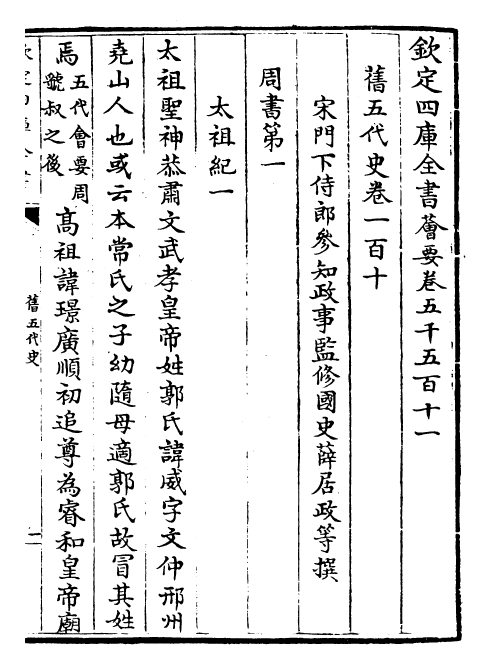 欽定四庫全書薈要卷五千五百十一
舊五代史卷一百十
宋門下侍郎參知政事監修國史薛居政等撰
周書第一
太祖紀一
太祖聖神恭肅文武孝皇帝姓郭氏諱威字文仲邢州
堯山人也或云本常氏之子幼隨母適郭氏故冒其姓
焉五代會要周虢叔之後高祖諱璟廣順初追尊為睿和皇帝廟
舊五代史
一